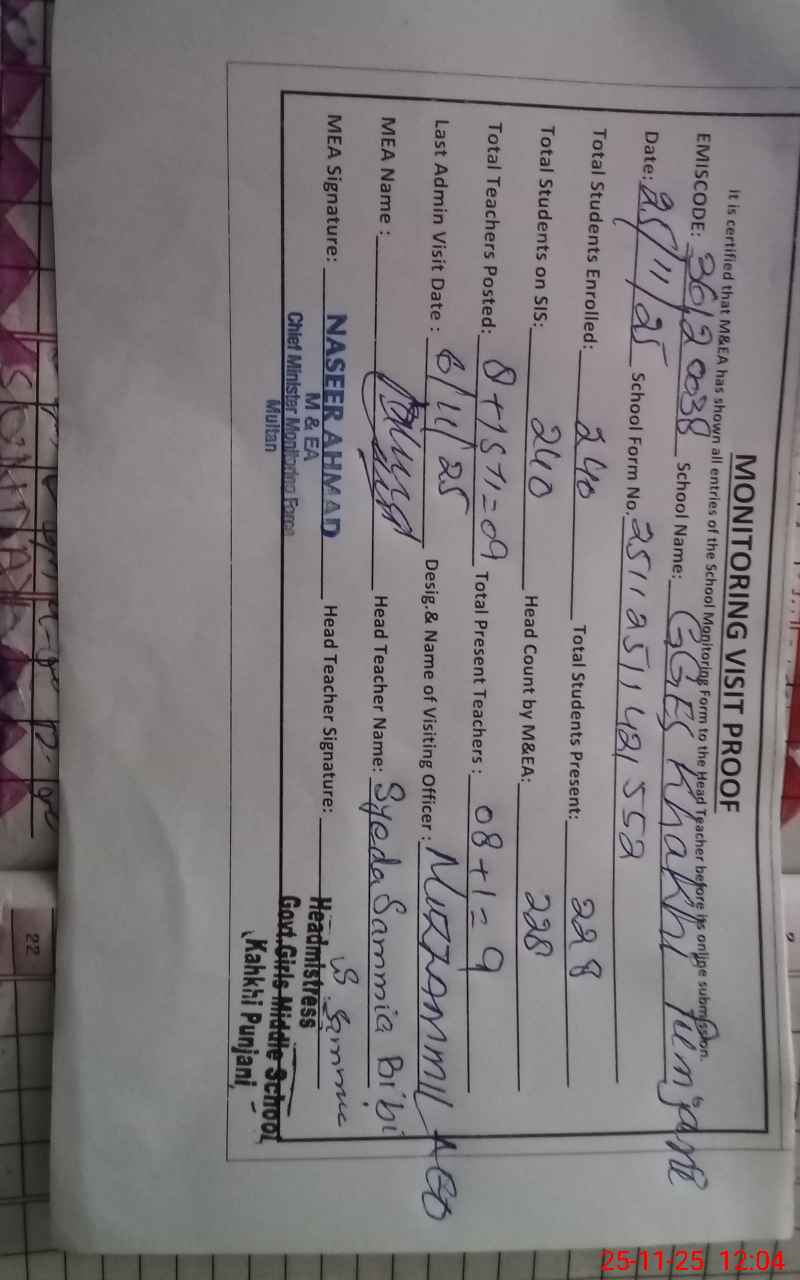 MONITORING VISIT PROOF
It is certified that M&EA has shown all entries of the School Monitoring Form to the Head Teacher before its online submission.
EMISCODE: 36120038 School Name: GGES Khakhi Punjani
Date: 25/11/25 School Form No. 25112511421552
Total Students Enrolled: 240 Total Students Present: 228
Total Students on SIS: 240 Head Count by M&EA: 228
Total Teachers Posted: 8+1 = 09 Total Present Teachers : 08+1=9
Last Admin Visit Date : 6/11/25 Desig.& Name of Visiting Officer :
MEA Name : Head Teacher Name: Syeda Sammia Bibi
MEA Signature: Head Teacher Signature:
NASEER AHMAD
M & EA
Chief Minister Monitoring Force
Multan
Headmistress
Govt.Girls Middle School
Kahkhi Punjani,
22
25-11-25 12:04